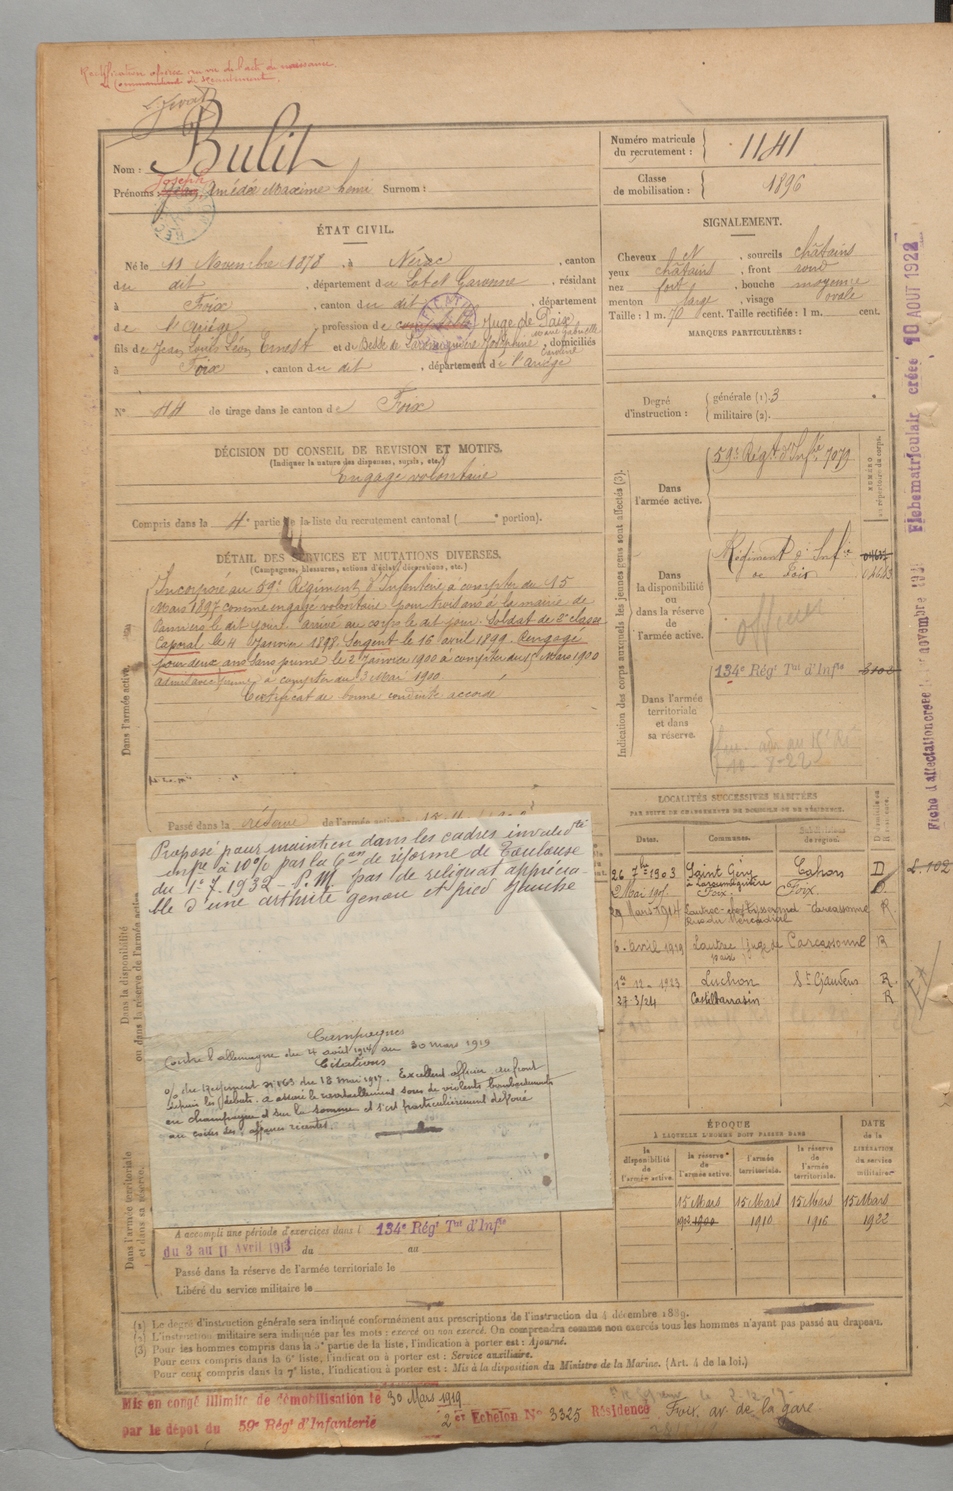 Rectification opérée en vu de l'acte de naissance
Le Commandant de recrutement.
Nom : Bulit
Joseph
Prénoms : Amédée Maxime henri Surnom :
ÉTAT CIVIL.
Né le 11 Novembre 1878, à Nérac, canton
du dit, département du Lot et Garonne, résidant
à Foix, canton du dit, département
de l'Ariège, profession de Juge de Paix,
fils de Jean Louis Léon Ernest et de Joséphine, domiciliés
à Foix, canton du dit, département de l'Ariège
N° 44 de tirage dans le canton de Foix
DÉCISION DU CONSEIL DE REVISION ET MOTIFS.
(Indiquer la nature des dispenses, sursis, etc.)
Engagé volontaire
Compris dans la 4e partie de la liste du recrutement cantonal ( portion).
DÉTAIL DES SERVICES ET MUTATIONS DIVERSES.
(Campagnes, blessures, actions d'éclat, décorations, etc.)
Dans l'armée active.
Incorporé au 59e Régiment d'Infanterie à compter du 15
Mars 1897 comme engagé volontaire pour trois ans à la mairie de
Pamiers le dit jour. Arrivé au corps le dit jour. Soldat de 2e classe
Caporal le 4 Janvier 1898. Sergent le 16 avril 1899. Rengagé
pour deux ans sans prime le 2 Janvier 1900 à compter du 15 Mars 1900
à compter du 3 Mai 1900
Certificat de bonne conduite accordé
Passé dans la réserve de l'armée active
Dans la disponibilité
ou dans la réserve de l'armée active
Proposé pour maintien dans les cadres invalidité
infre à 10% par la Con de réforme de Toulouse
du 1.7.1932 – P.M. pas de reliquat apprécia-
ble d'une arthrite genou et pied gauche
Campagnes
Contre l'allemagne du 4 août 1914 au 30 mars 1919
Citations
O/ du régiment n° 163 du 18 mai 1917. Excellent officier au front
depuis les débuts. a assuré le ravitaillement sous de violents bombardements
en champagne et sur la somme et s'est particulièrement dévoué
au cours des affaires récentes.
Dans l'armée territoriale
et dans sa réserve.
A accompli une période d'exercices dans le 134e Régt Tal d'Infie
du 3 au 11 Avril 1913 du au
Passé dans la réserve de l'armée territoriale le
Libéré du service militaire le
Numéro matricule
du recrutement : 1141
Classe
de mobilisation : 1896
SIGNALEMENT.
Cheveux et, sourcils châtains
yeux châtains, front rond
nez fort, bouche moyenne
menton large, visage ovale
Taille : 1 m. 70 cent. Taille rectifiée : 1 m. cent.
MARQUES PARTICULIÈRES :
Degré
d'instruction :
générale (1). 3
militaire (2).
Indication des corps auxquels les jeunes gens sont affectés (3).
NUMÉRO
au répertoire du corps.
Dans
l'armée active.
59e Régt d'Infie 7079
Dans
la disponibilité
ou
dans la réserve
de
l'armée active.
Régiment d'Infie
de Foix
officier
Dans l'armée
territoriale
et dans
sa réserve.
134e Rég Tal d'Infie
LOCALITÉS SUCCESSIVES HABITÉES
PAR SUITE DE CHANGEMENTS DE DOMICILE OU DE RÉSIDENCE.
Dates. Communes. Subdivisions de région.
26 7bre 1903 Saint Géry Cahors D L.102
2 Mai 1905 Foix Foix D
29 Mars 1914 Lautrec Carcassonne R
6. avril 1919 Lautrec (Juge de paix) Carcassonne R
1er 12 - 1923 Luchon St Gaudens R
27-3/24 Castelsarrasin R
ÉPOQUE
À LAQUELLE L'HOMME DOIT PASSER DANS
DATE
de la
LIBÉRATION
du service
militaire.
la
disponibilité
de
l'armée active.
la réserve
de
l'armée active.
l'armée
territoriale.
la réserve
de
l'armée
territoriale.
15 Mars 15 Mars 15 Mars 15 Mars
1902 1900 1910 1916 1922
Fiche matriculaire créée 10 AOUT 1922
Fiche d'affectation créée le novembre
(1) Le degré d'instruction générale sera indiqué conformément aux prescriptions de l'instruction du 4 décembre 1889.
(2) L'instruction militaire sera indiquée par les mots : exercé ou non exercé. On comprendra comme non exercés tous les hommes n'ayant pas passé au drapeau.
(3) Pour les hommes compris dans la 5e partie de la liste, l'indication à porter est : Ajourné.
Pour ceux compris dans la 6e liste, l'indication à porter est : Service auxiliaire.
Pour ceux compris dans la 7e liste, l'indication à porter est : Mis à la disposition du Ministre de la Marine. (Art. 4 de la loi.)
Mis en congé illimité de démobilisation le 30 Mars 1919
2er Echelon N° 3325 Résidence Foix av. de la gare
par le dépôt du 59e Régt d'Infanterie